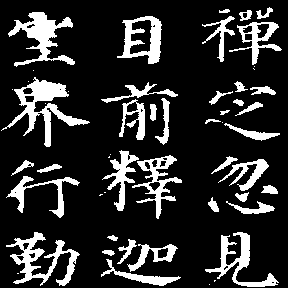 禪定忽見
目前釋迦
空界行勤